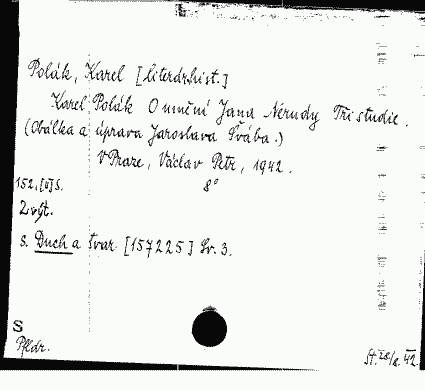 Polák, Karel [literárhist.]
Karel Polák O umění Jana Nerudy Tři studie.
(Obálka a úprava Jaroslava Švába.)
V Praze, Václav Petr, 1942.
152, [4] s. 8°
2. výt.
s. Duch a tvar [157225] Sv. 3.
S
Př. dr.